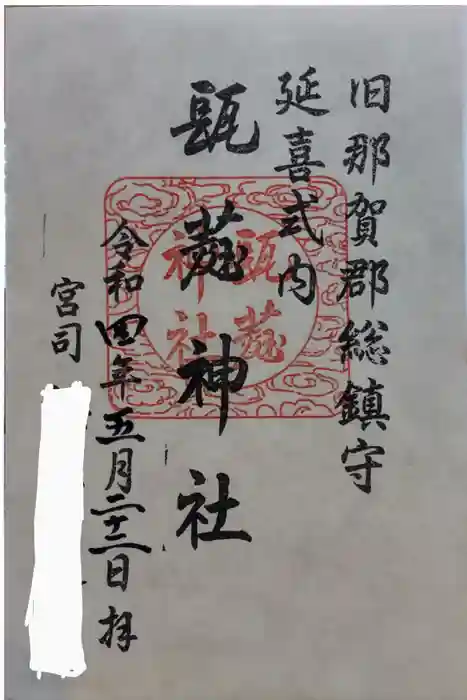 旧那賀郡総鎮守
延喜式内
瓺 神社
瓺
神社
令和四年五月二十二日 拝
宮司